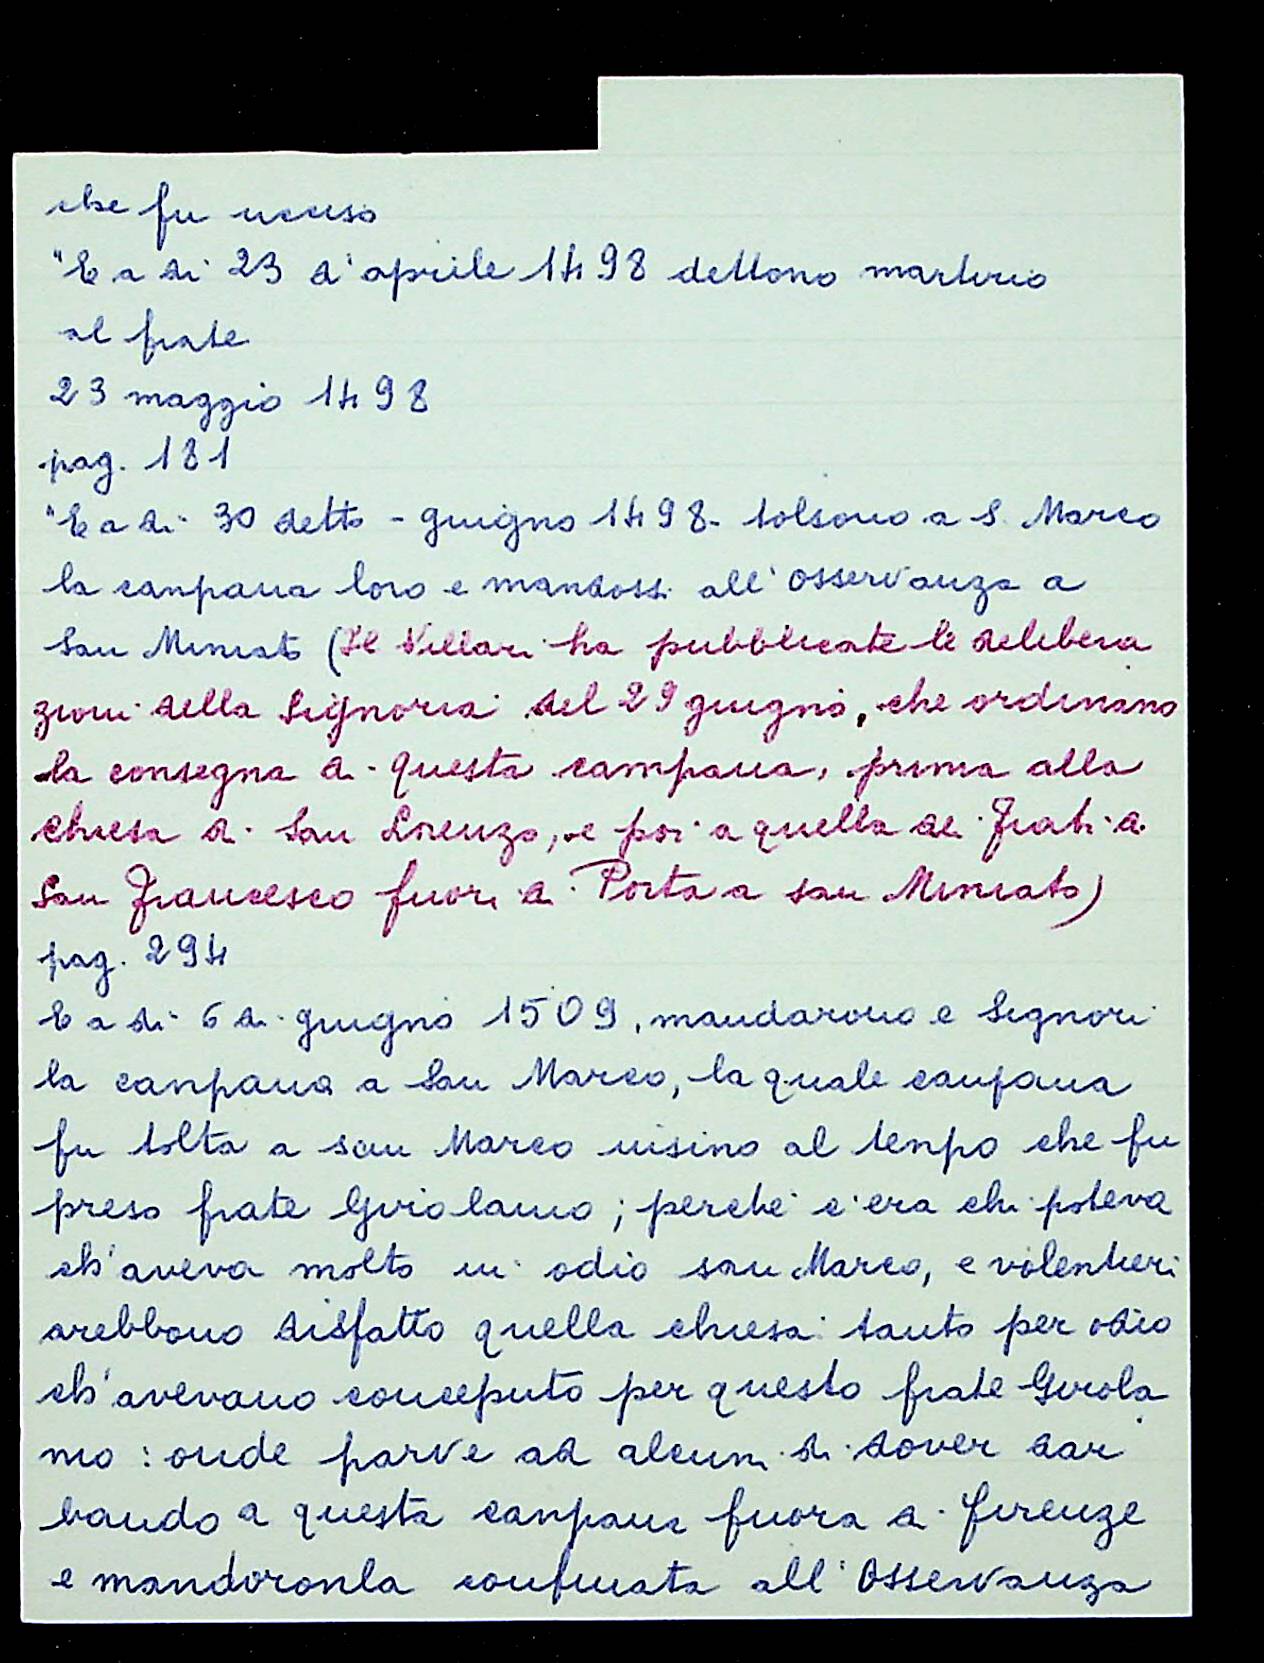 che fu ucciso
"E a di' 23 d'aprile 1498 dettono martirio
al frate
23 maggio 1498
pag. 181
"E a di 30 detto - giugno 1498 - tolsono a S. Marco
la canpana loro e mandossi all'Osservanza a
San Miniato (Il Villari ha pubblicate le delibera
zioni della Signoria del 29 giugno, che ordinano
la consegna di questa campana, prima alla
chiesa di San Lorenzo, e poi a quella dei Frati di
San Francesco fuori di Porta a san Miniato)
pag. 294
E a di 6 di giugno 1509, mandarono e Signori
la canpana a San Marco, la quale canpana
fu tolta a san Marco insino al tenpo che fu
preso frate Girolamo; perché c'era chi poteva
ch'aveva molto in odio san Marco, e volentieri
arebbono disfatto quella chiesa tanto per odio
ch'avevano conceputo per questo frate Girola
mo: onde parve ad alcuni di dover dar
bando a questa canpana fuora di Firenze
e mandoronla confinata all'Osservanza